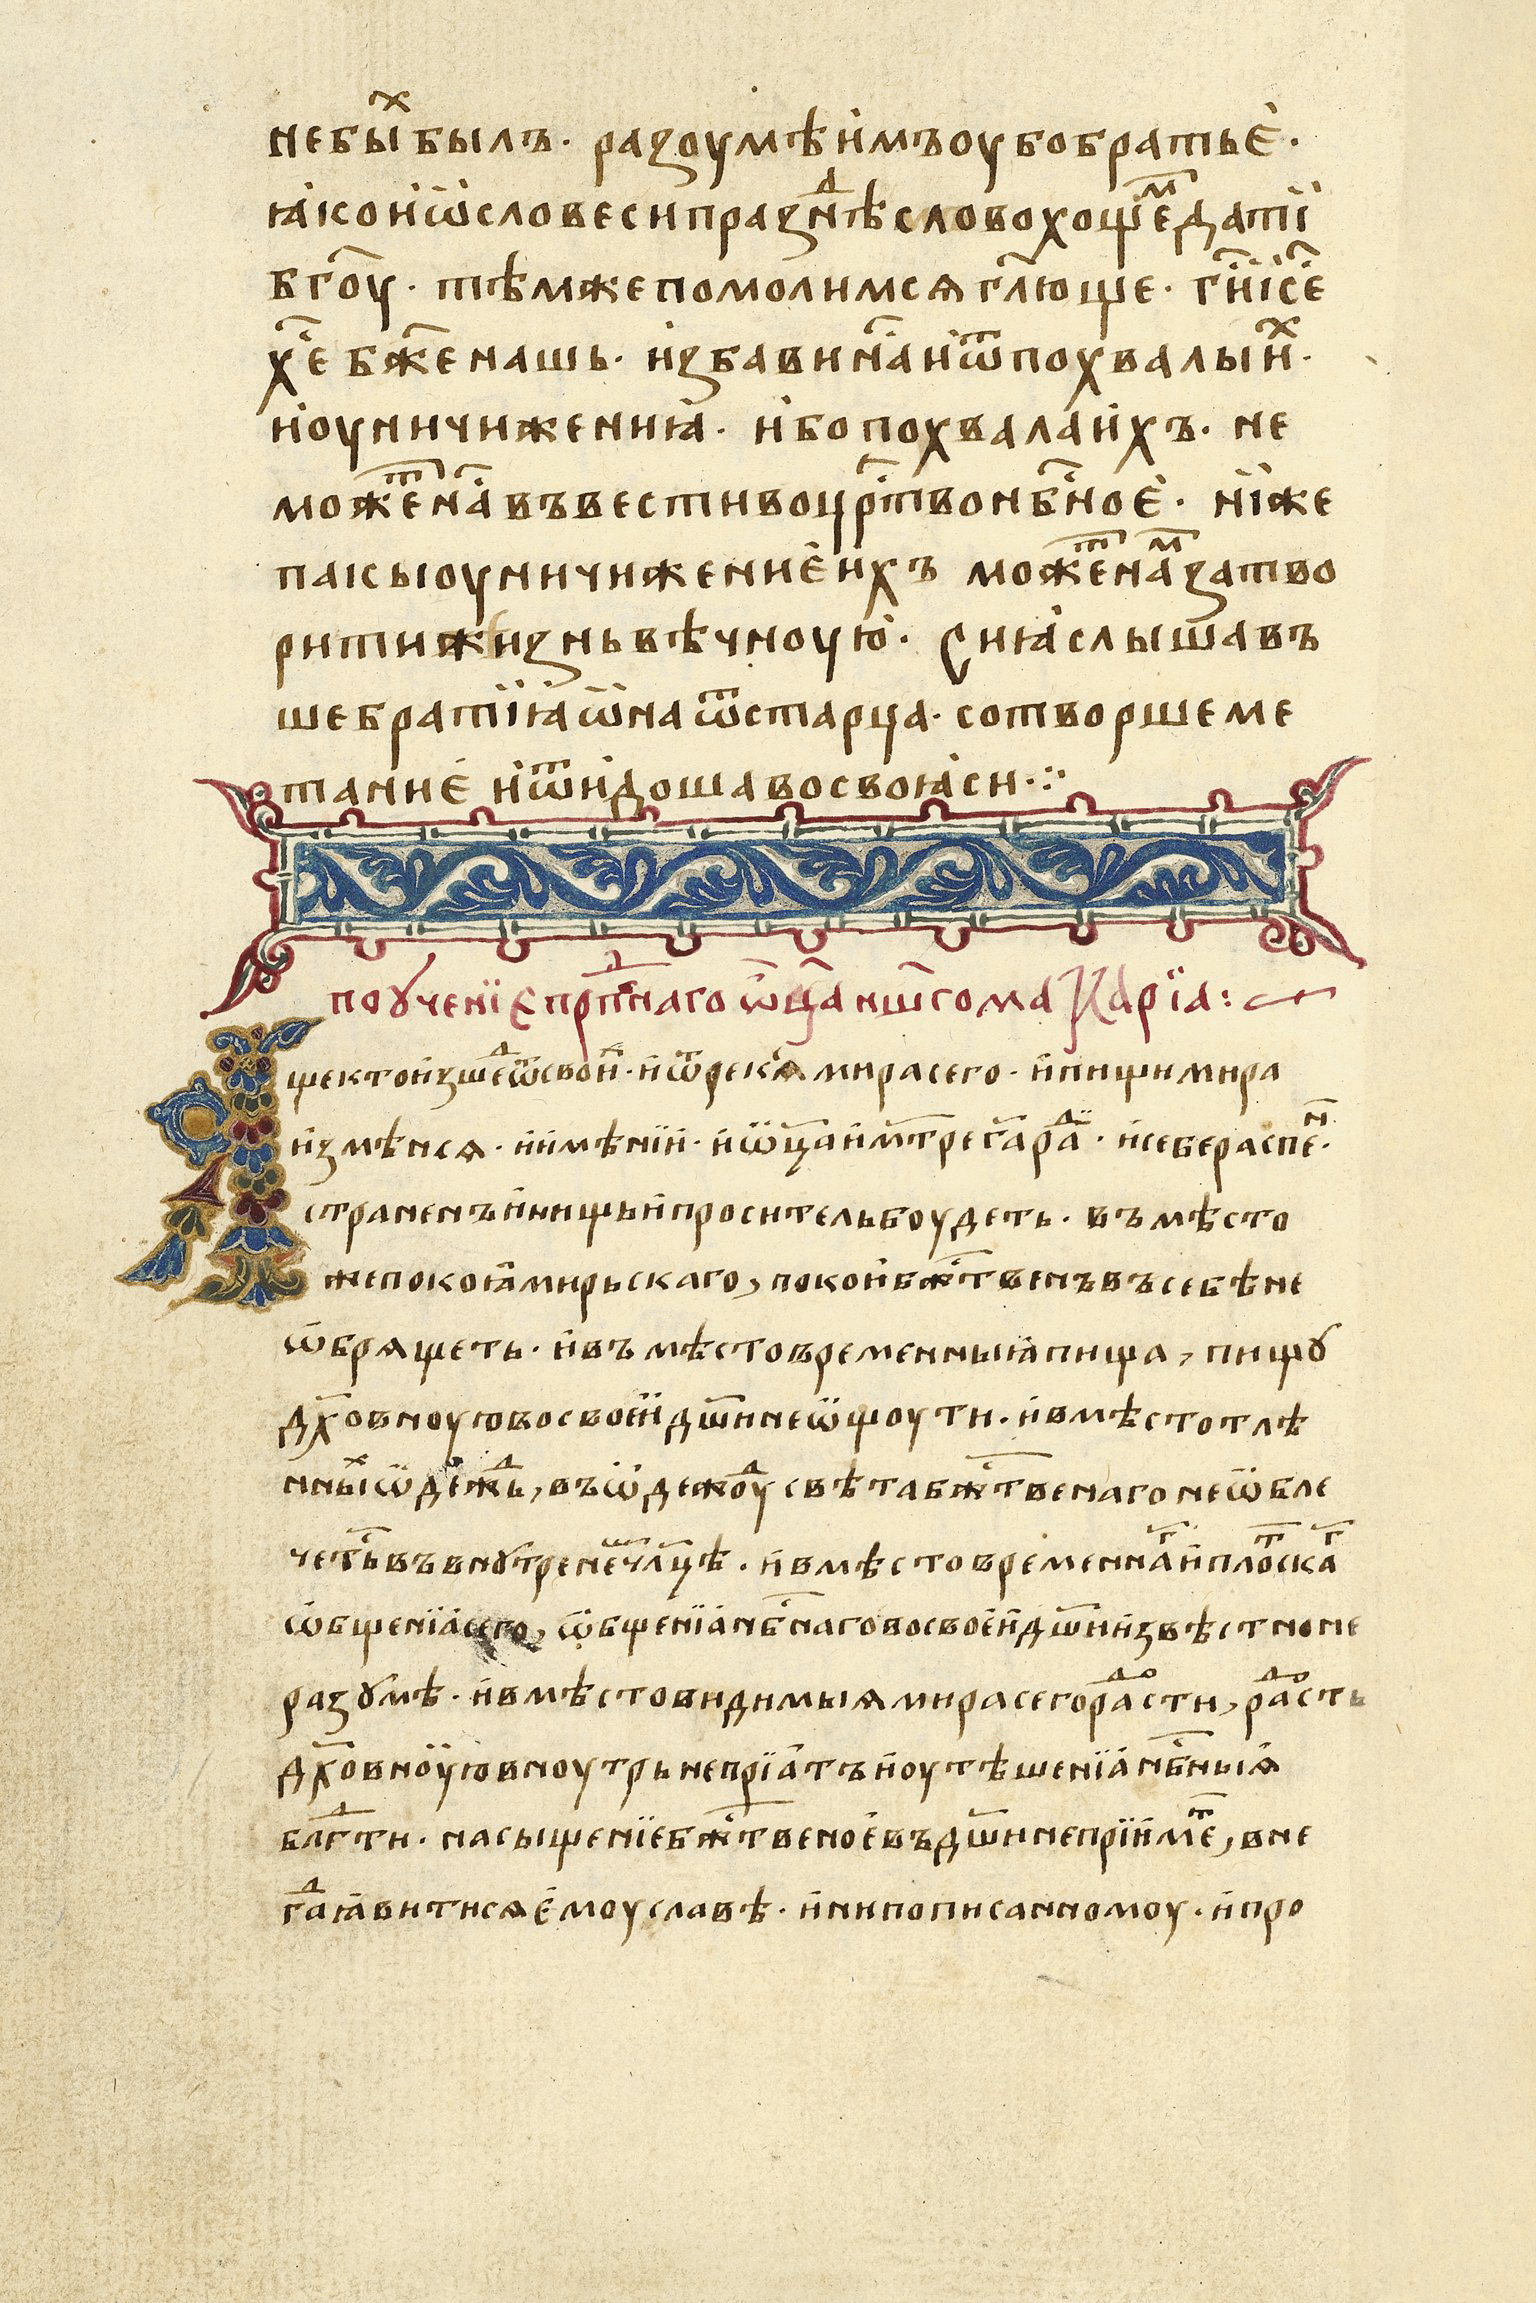 небыⷯ былъ· разоумѣимъоубобратьѐ·
ꙗкоиѿсловесипразⷣнѣсловохощеⷨдатиї
бг҃оу· тѣмжепомолимсѧгл҃юще· гн҃иі҃се
хе҃ бж҃енашь· избавинаⷭ҇иѿпохвалыиⷯ·
иоуничижениꙗ· ибопохвалаихъ· не
можеⷮнаⷭ҇въвестивоцрⷭ҇твонбⷭ҇ноѐ· ниже
пакыоуничижениѐихъ можеⷮнаⷨзатво
ритижизньвѣчноую· Сиꙗслышавъ
шебратиꙗѡнаѿстарца· сотворшеме
таниѐ иѿидошавосвоꙗси·:·
поꙋченїепрпⷣбнаго ѿц҃анш҃гомакарїа:
Ащектоизшеⷣѿсвоиⷯ· иѿрексѧмирасего· инищимира
измѣнсѧ· иимѣнїи· иѿц҃аимт҃регараⷣ· исебераспеⷩ·
страненъинищьипросительбоудеть· въмѣсто
жепокоꙗмирьскаго, покоибжⷭ҇твенъвъсебѣне
ѡбрѧщеть· ивъмѣстовременныꙗпища, пищꙋ
дх҃овноуювосвоеидш҃инеѡщоути· ивмѣстотлѣ
нныⷯѡдежⷣь, въѡдежⷣоусвѣтабжⷭ҇твенагонеѡбле
четьⷭ҇въвнꙋтренечл҃цѣ· ивмѣстовременнаⷢиплоⷮскаⷢ
ѡбщенїасего, ѡбщенїанбⷭ҇наговосвоеидш҃иизвѣстноне
разꙋмѣ· ивмѣстовидимыѧмирасегораⷣости, раⷣость
дх҃овноуювноутрьнепрїатъиоутѣшенїанбⷭ҇ныѧ
блгⷣти· насыщенїебжⷭ҇твеноевъдш҃инепрїимеⷮ, вне
гⷣаꙗвитисѧемоуславѣ· инипописанномоу· ипро